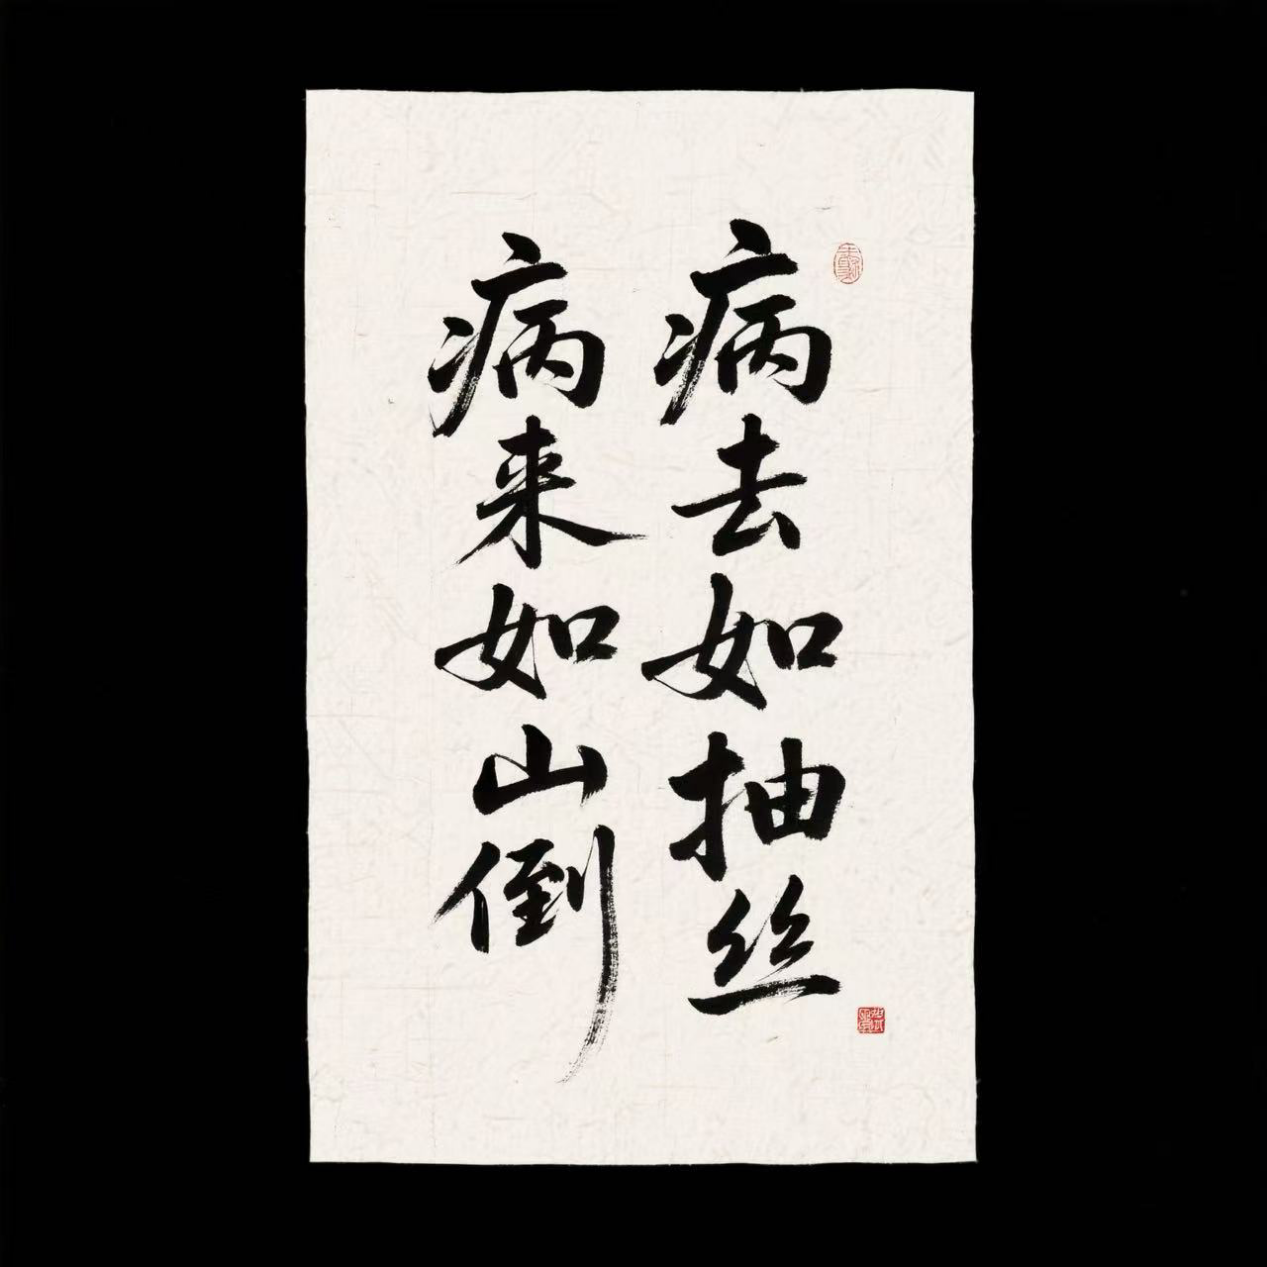 病去如抽丝
病来如山倒